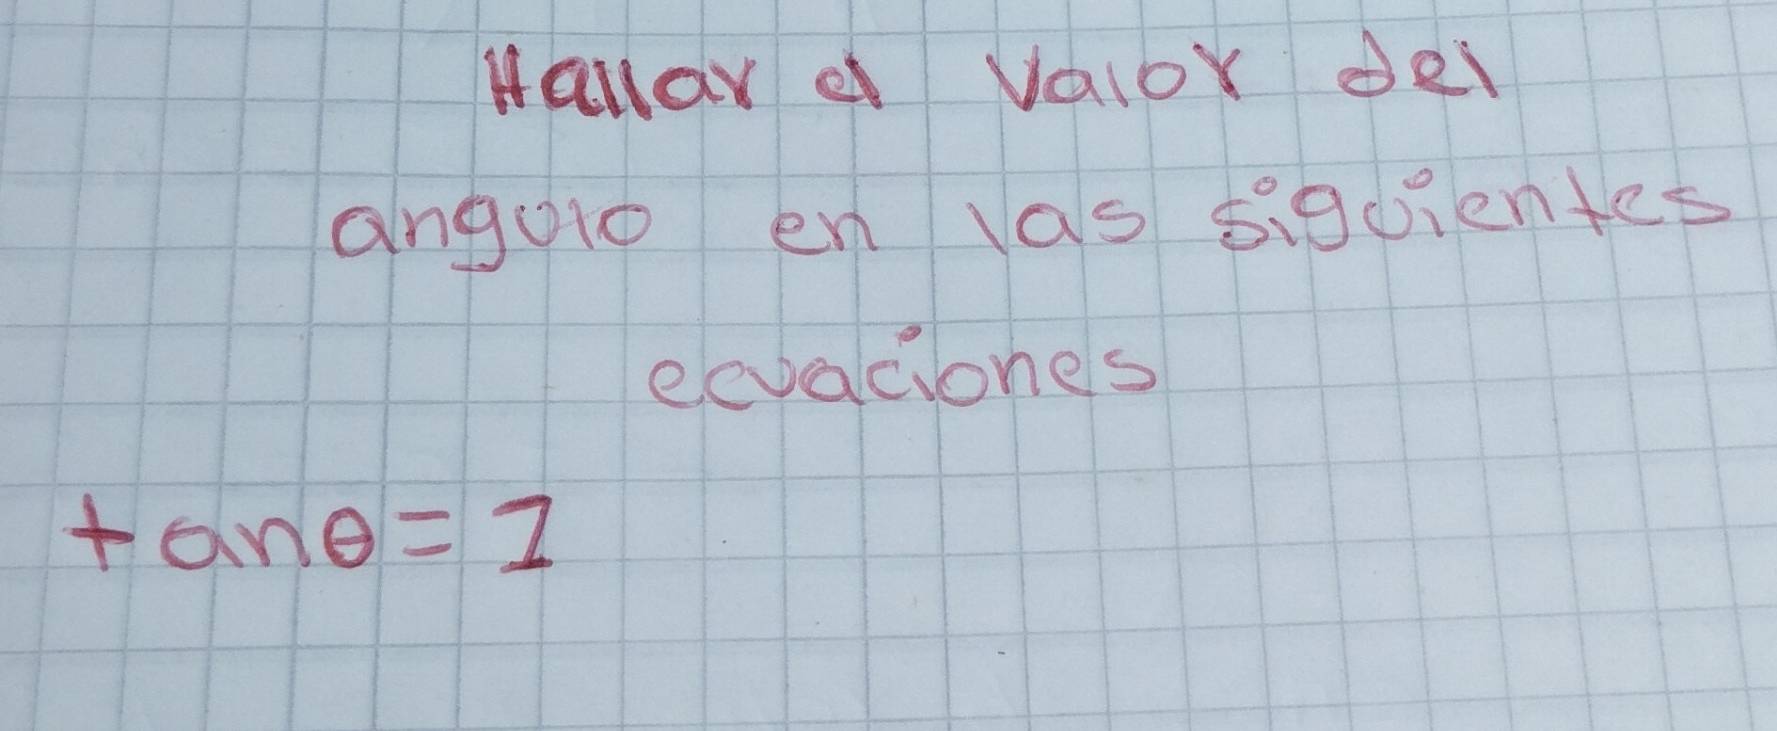 Hallar el valor del
angulo en las siguientes
ecuaciones
tanθ = 1